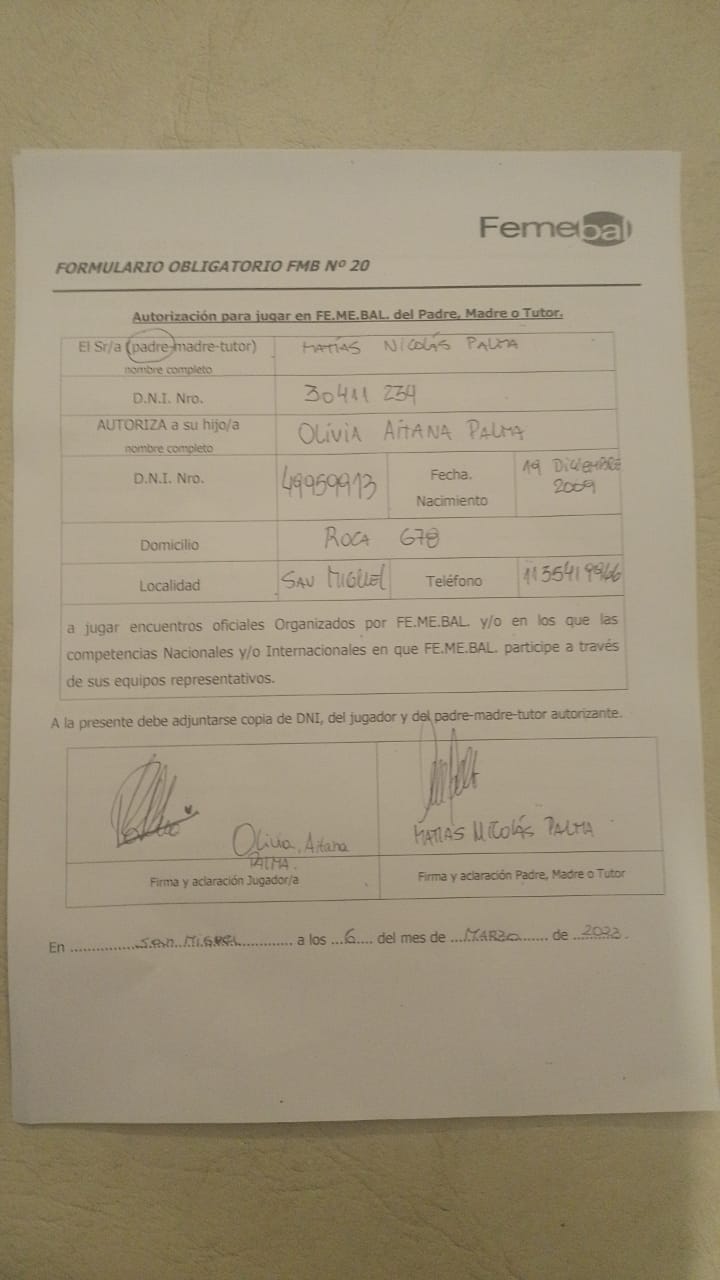 Femebal
FORMULARIO OBLIGATORIO FMB Nº 20
Autorización para jugar en FE.ME.BAL. del Padre, Madre o Tutor.
El Sr/a (padre-madre-tutor) MATÍAS NICOLÁS PALMA
nombre completo
D.N.I. Nro. 30411 234
AUTORIZA a su hijo/a OLIVIA AITANA PALMA
nombre completo
D.N.I. Nro. 49959913 Fecha. 19 DICIEMBRE
Nacimiento 2009
Domicilio ROCA 678
Localidad SAN MIGUEL Teléfono 1135419966
a jugar encuentros oficiales Organizados por FE.ME.BAL. y/o en los que las
competencias Nacionales y/o Internacionales en que FE.ME.BAL. participe a través
de sus equipos representativos.
A la presente debe adjuntarse copia de DNI, del jugador y del padre-madre-tutor autorizante.
Olivia, Aitana MATIAS NICOLÁS PALMA
PALMA.
Firma y aclaración Jugador/a Firma y aclaración Padre, Madre o Tutor
En ...............San Miguel............. a los ...6.... del mes de ...MARZO....... de ..2023..